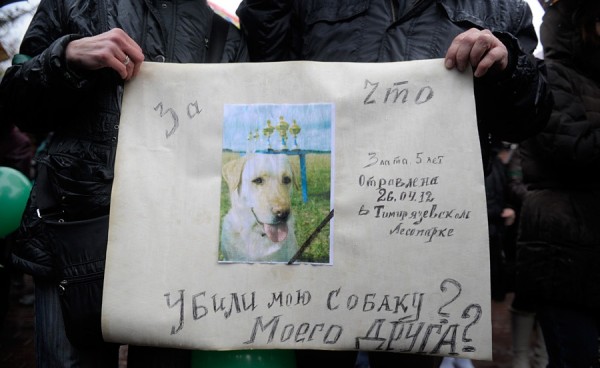 За что
Злата 5 лет
Отравлена
26.04.12
в Тимирязевском
Лесопарке
Убили мою собаку?
Моего друга?